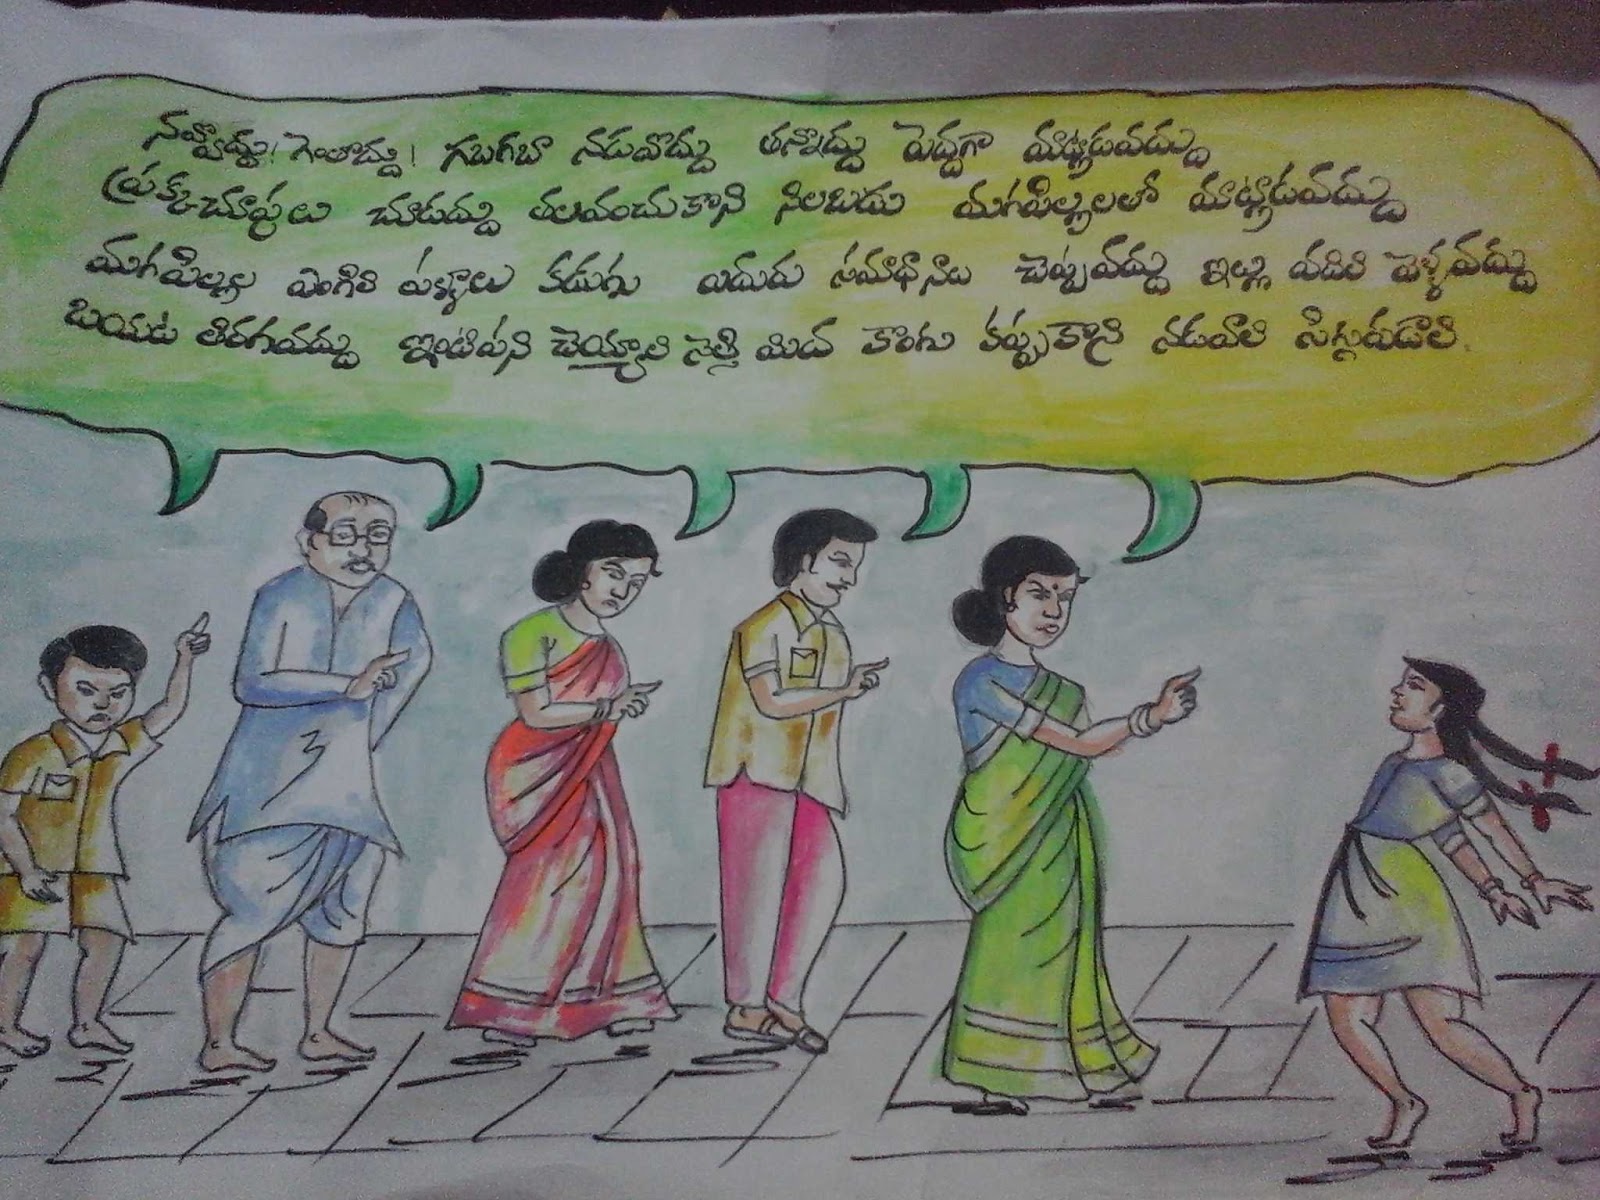 నవ్వొద్దు! గెంతొద్దు! గబగబా నడువొద్దు తన్నొద్దు పెద్దగా మాట్లాడువద్దు
ప్రక్కచూపులు చూడుద్దు తలవంచుకొని నిలబడు మగపిల్లలతో మాట్లాడువద్దు
మగపిల్లల ఎంగిలి పళ్ళాలు కడుగు ఎదురు సమాధానాలు చెప్పవద్దు ఇల్లు వదిలి వెళ్ళవద్దు
బయట తిరగవద్దు ఇంటిపని చెయ్యాలి నెత్తి మీద కొంగు కప్పుకొని నడవాలి సిగ్గుపడాలి.